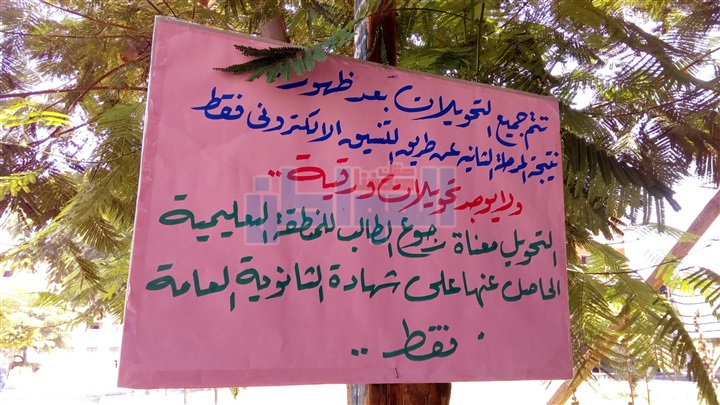 تتم جميع التحويلات بعد ظهور
نتيجة المرحلة الثانية عن طريق التنسيق الالكترونى فقط
ولا يوجد تحويلات ورقية ..
التحويل معناة رجوع الطالب للمنطقة التعليمية
الحاصل عنها على شهادة الثانوية العامة
. فقط ..